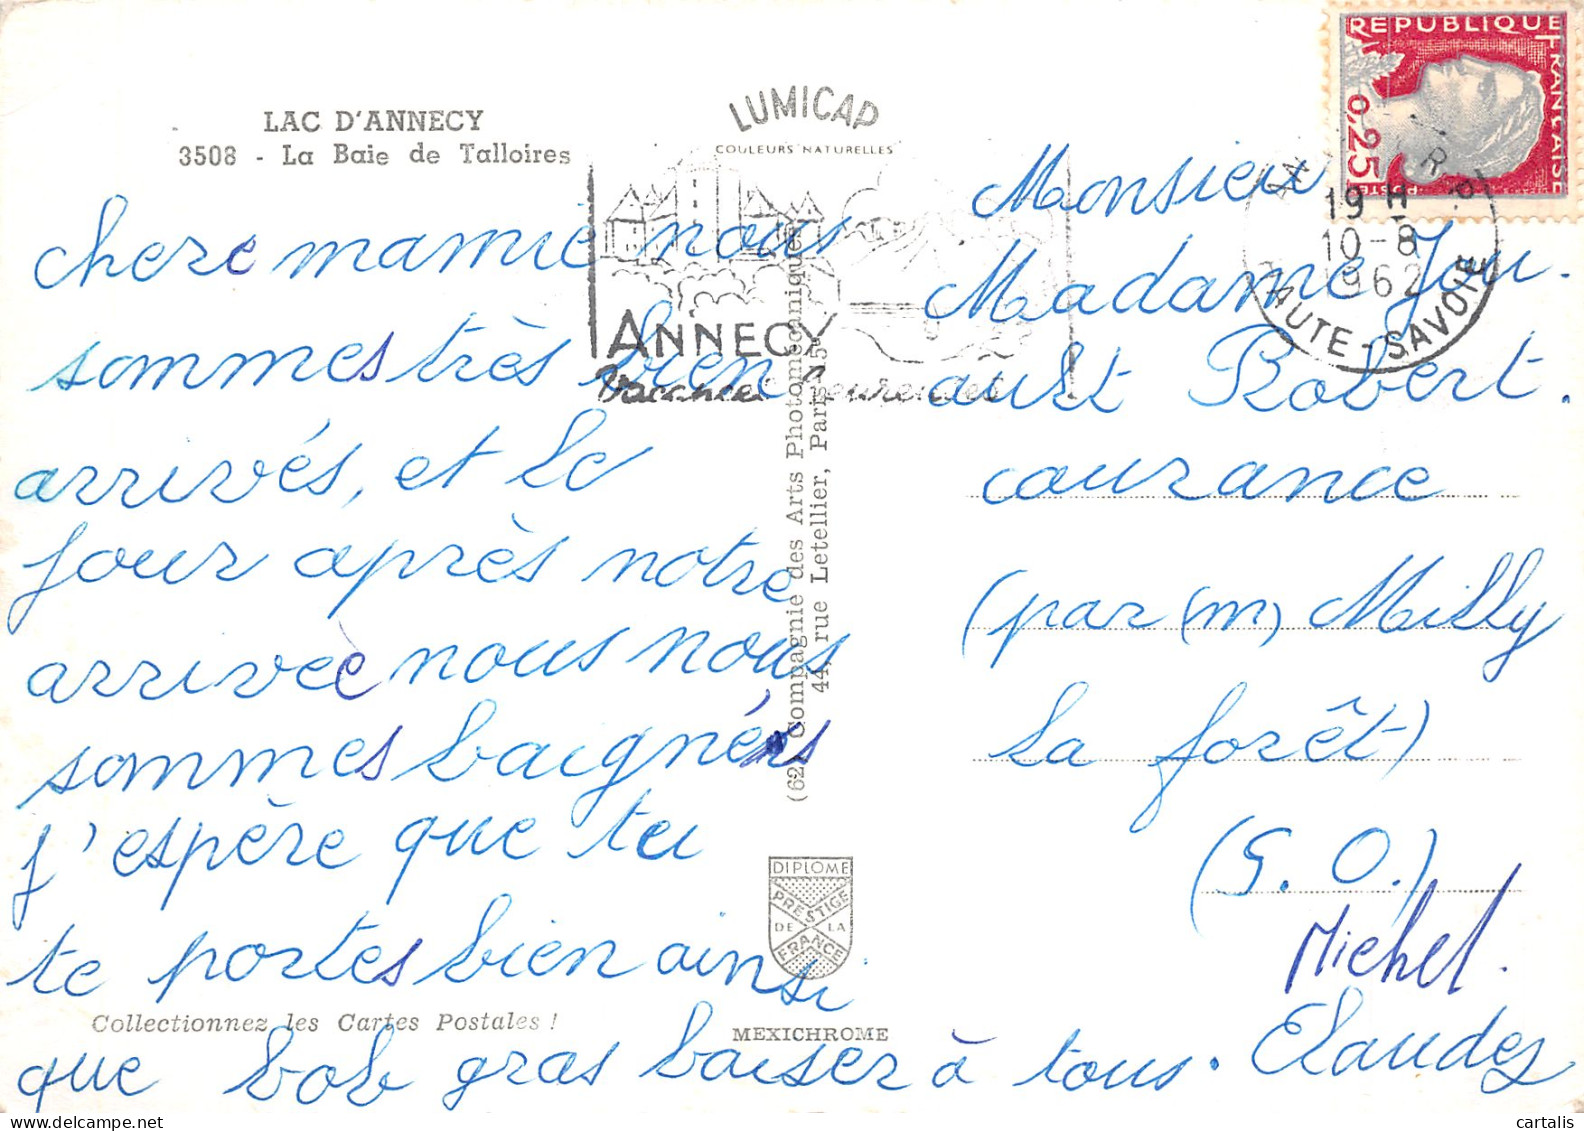 LAC D'ANNECY
3508 - La Baie de Talloires
LUMICAP
COULEURS NATURELLES
REPUBLIQUE FRANÇAISE
0,25
POSTES
R.P
19 H
10-8
1962
HAUTE-SAVOIE
ANNECY
Vacances heureuses
chere mamie nous
sommes très bien
arrivés, et le
jour après notre
arrivee nous nous
sommes baignés
j'espère que tu
te portes bien ainsi
que bob gras baiser à tous.
Monsieur
Madame Jou-
ault Robert.
courance
(par (m) Milly
La forêt)
(S. O.)
Michel.
Claudey
(62) Compagnie des Arts Photomécaniques
44, rue Letellier, Paris-15e
DIPLOME
PRESTIGE
DE LA
FRANCE
Collectionnez les Cartes Postales !
MEXICHROME
delcampe.net
cartalis